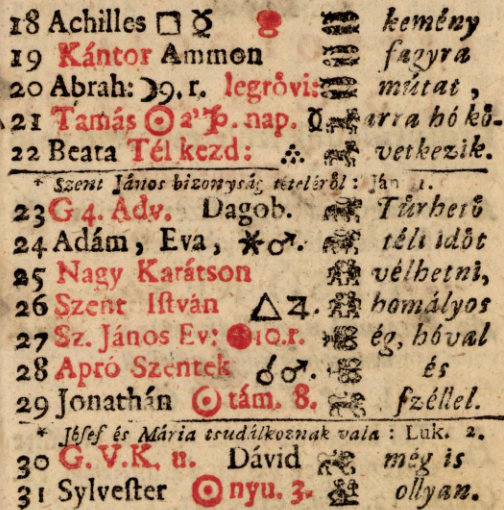 18 Achilles □ ☿ kemény
19 Kántor Ammon fagyra
20 Abrah: ☽9. r. legrövi: mútat,
21 Tamás ☉ a' ♑. nap. ☿ arra hó kö-
22 Beata Tél kezd: vetkezik.
* Szent János bizonyság tételéről: Ján 1.
23 G 4. Adv. Dagob. Tůrhető
24 Adám, Eva, ⚹ ♂. téli időt
25 Nagy Karátson vélhetni,
26 Szent István △ ♃. homályos
27 Sz. János Ev: 10. r. ég, hóval
28 Apró Szentek ☌ ♂. és
29 Jonathán ☉ tám. 8. széllel.
* Jósef és Mária tsudálkoznak vala: Luk. 2.
30 G. V. K. u. Dávid még is
31 Sylvester ☉ nyu. 3. ollyan.